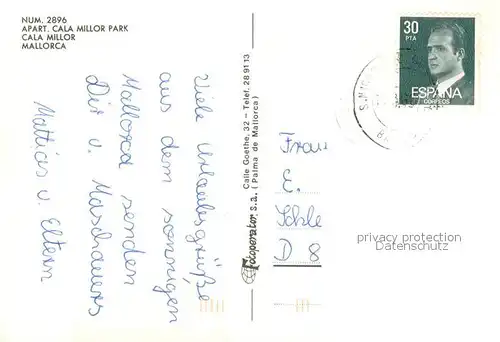 NUM. 2896
APART. CALA MILLOR PARK
CALA MILLOR
MALLORCA
Viele Urlaubsgrüße
aus dem sonnigen
Mallorca senden
Dir v. Maschauers
Mattias u. Eltern
Fotoperator s.a.
Calle Goethe, 32 - Telef. 28 91 13
( Palma de Mallorca )
30
PTA
ESPAÑA
CORREOS
Frau
E.
D 8
privacy protection
Datenschutz